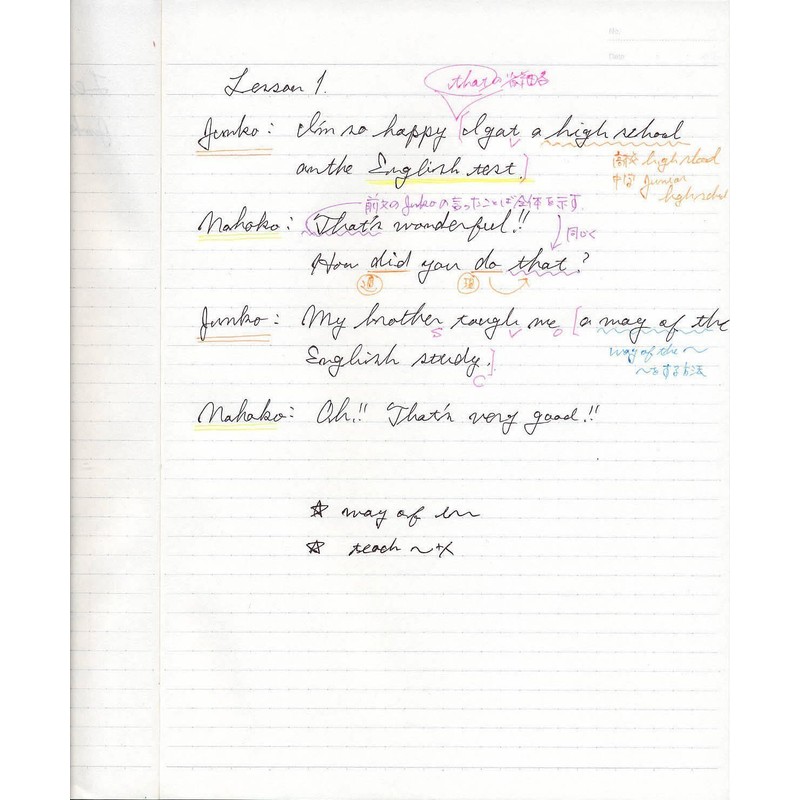 Lesson 1.
thatの省略
Junko: I'm so happy [I got a high school
on the English test.]
高校 high shool
中学 Junior
high school
前文の Junkoの言ったことば全体を示す.
Nahoko: That's wonderful!!
同じく
How did you do that?
Junko: My brother taugh me [a way of the
S V O
English study.]
C
way of the ~
~をする方法
Nahoko: Oh!! That's very good!!
☆ way of
☆ teach ~+